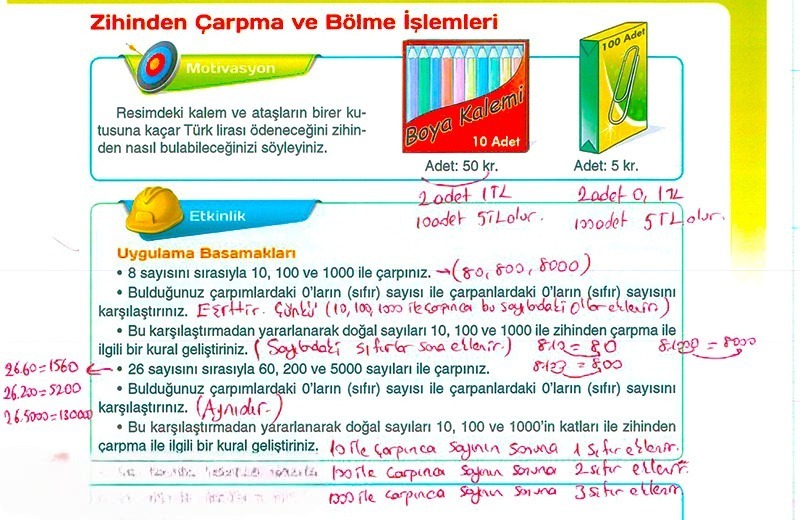 Zihinden Çarpma ve Bölme İşlemleri
Motivasyon
Resimdeki kalem ve ataşların birer ku-
tusuna kaçar Türk lirası ödeneceğini zihin-
den nasıl bulabileceğinizi söyleyiniz.
Boya Kalemi
10 Adet
Adet: 50 kr.
2 adet 1 TL
10 adet 5 TL olur.
100 Adet
Adet: 5 kr.
2 adet 0,1 TL
100 adet 5 TL olur.
Etkinlik
Uygulama Basamakları
• 8 sayısını sırasıyla 10, 100 ve 1000 ile çarpınız. → (80, 800, 8000)
• Bulduğunuz çarpımlardaki 0'ların (sıfır) sayısı ile çarpanlardaki 0'ların (sıfır) sayısını
karşılaştırınız. Eşittir. Çünkü (10, 100, 1000 ile çarpınca bu sayılardaki 0'lar eklenir)
• Bu karşılaştırmadan yararlanarak doğal sayıları 10, 100 ve 1000 ile zihinden çarpma ile
ilgili bir kural geliştiriniz. (Sayılardaki sıfırlar sona eklenir.) 8.10 = 80 8.1000 = 8000
8.100 = 800
• 26 sayısını sırasıyla 60, 200 ve 5000 sayıları ile çarpınız.
26.60=1560
26.200=5200
26.5000=130000
• Bulduğunuz çarpımlardaki 0'ların (sıfır) sayısı ile çarpanlardaki 0'ların (sıfır) sayısını
karşılaştırınız. (Aynıdır.)
• Bu karşılaştırmadan yararlanarak doğal sayıları 10, 100 ve 1000'in katları ile zihinden
çarpma ile ilgili bir kural geliştiriniz. 10 ile çarpınca sayının sonuna 1 sıfır eklenir.
100 ile çarpınca sayının sonuna 2 sıfır eklenir.
1000 ile çarpınca sayının sonuna 3 sıfır eklenir